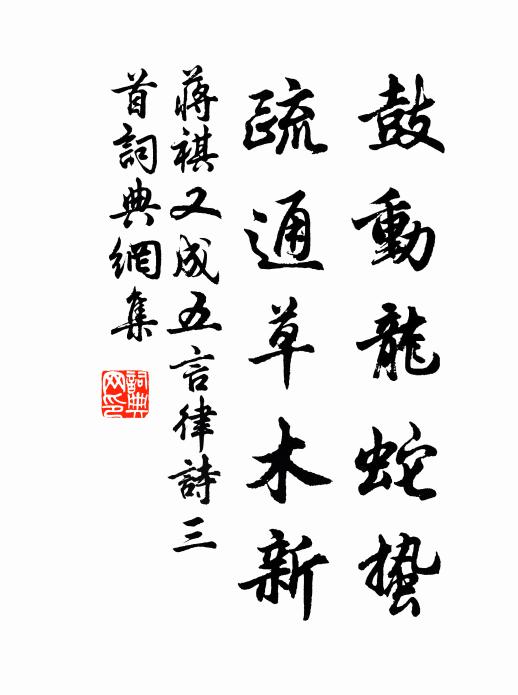 鼓動龍蛇蟄
疏通草木新
蔣祺又成五言律詩三
首詞典網集
詞典
网印